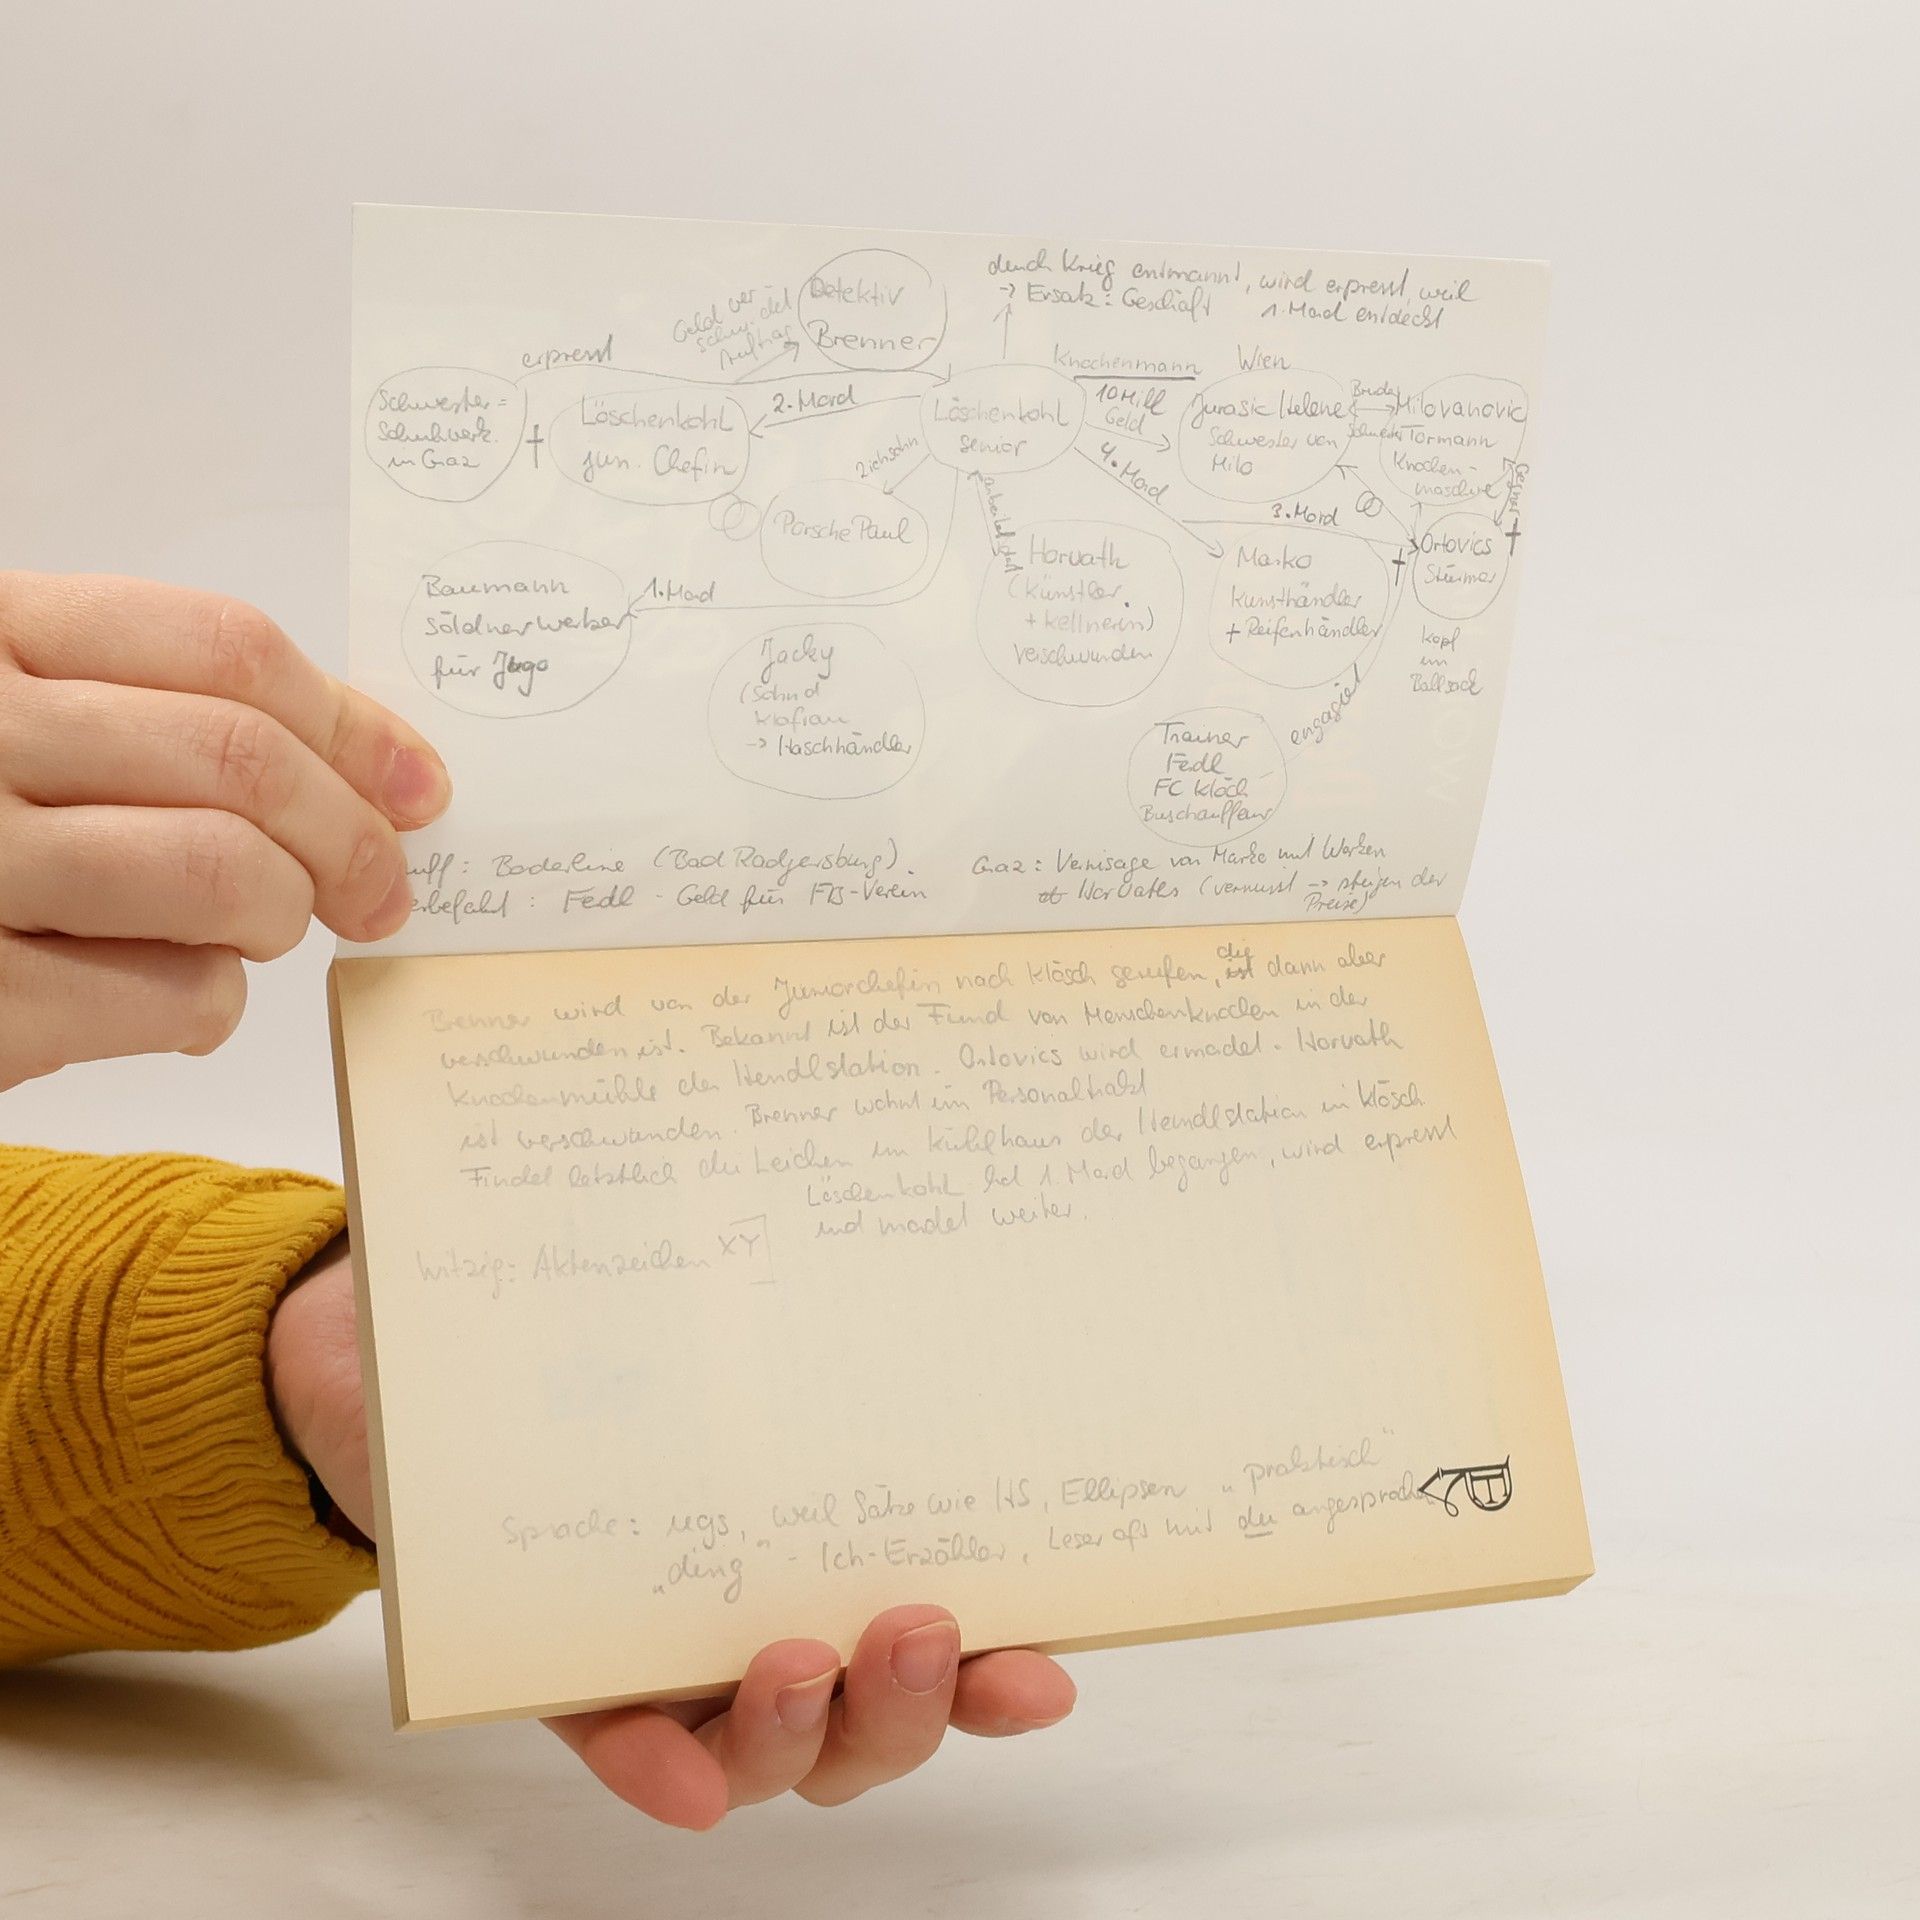 durch Krieg entmannt, wird erpresst, weil
→ Ersatz: Geschäft 1. Mord entdeckt
Detektiv
Brenner
Geld ver-
schwindet
Auftrag
erpresst
Schwester =
Schuhverk.
in Graz
†
Löschenkohl
jun. Chefin
2. Mord
Löschenkohl
senior
Knochenmann
10 Mill
Geld
Wien
Jurasic Helene
Schwester von
Milo
Bruder
Schwester
Milovanovic
Tormann
Knochen-
maschine
Gegner
†
Ziehsohn
Porsche Paul
4. Mord
3. Mord
†
Ortovics
Stürmer
Kopf
im
Ballsack
arbeitet dort
Horvath
(Künstler
+ Kellnerin)
verschwunden
Marko
Kunsthändler
+ Reifenhändler
Baumann
Söldnerwerber
für Jugo
1. Mord
Jacky
(Sohn d
Klofrau
→ Haschhändler
Trainer
Fedl
FC Klöch
Buschauffeur
engagiert
uff: Boderline (Bad Radgersburg)
erbefahrt: Fedl - Geld für FB-Verein
Graz: Vernisage von Marko mit Werken
Horvaths (vermisst → steigen der
Preise)
Brenner wird von der Juniorchefin nach Klösch gerufen, die dann aber
verschwunden ist. Bekannt ist der Fund von Menschenknochen in der
Knochenmühle der Hendlstation. Ortovics wird ermordet. Horvath
ist verschwunden. Brenner wohnt im Personaltrakt
Findet letztlich die Leichen im Kühlhaus der Hendlstation in Klösch
Löschenkohl hat 1. Mord begangen, wird erpresst
und mordet weiter.
witzig: Aktenzeichen XY
Sprache: ugs, „weil Sätze wie HS, Ellipsen „praktisch"
„ding" - Ich-Erzähler, Leser oft mit du angesprochen